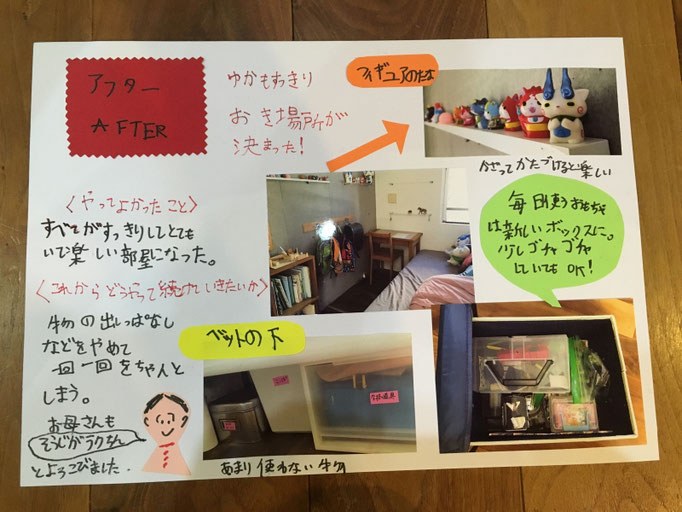 アフター
AFTER
ゆかもすっきり
おき場所が
決まった！
フィギュアのたな
かざってかたづけると楽しい
〈やってよかったこと〉
すべてがすっきりしてとても
いで楽しい部屋になった。
毎日使うおもちゃ
は新しいボックスに。
少しゴチャゴチャ
していてもOK！
〈これからどうやって続けていきたいか〉
物の出しっぱなし
などをやめて
一回一回をちゃんと
しまう。
お母さんも
そうじがラクなん
とよろこびました.
ベットの下
あまり使わない物